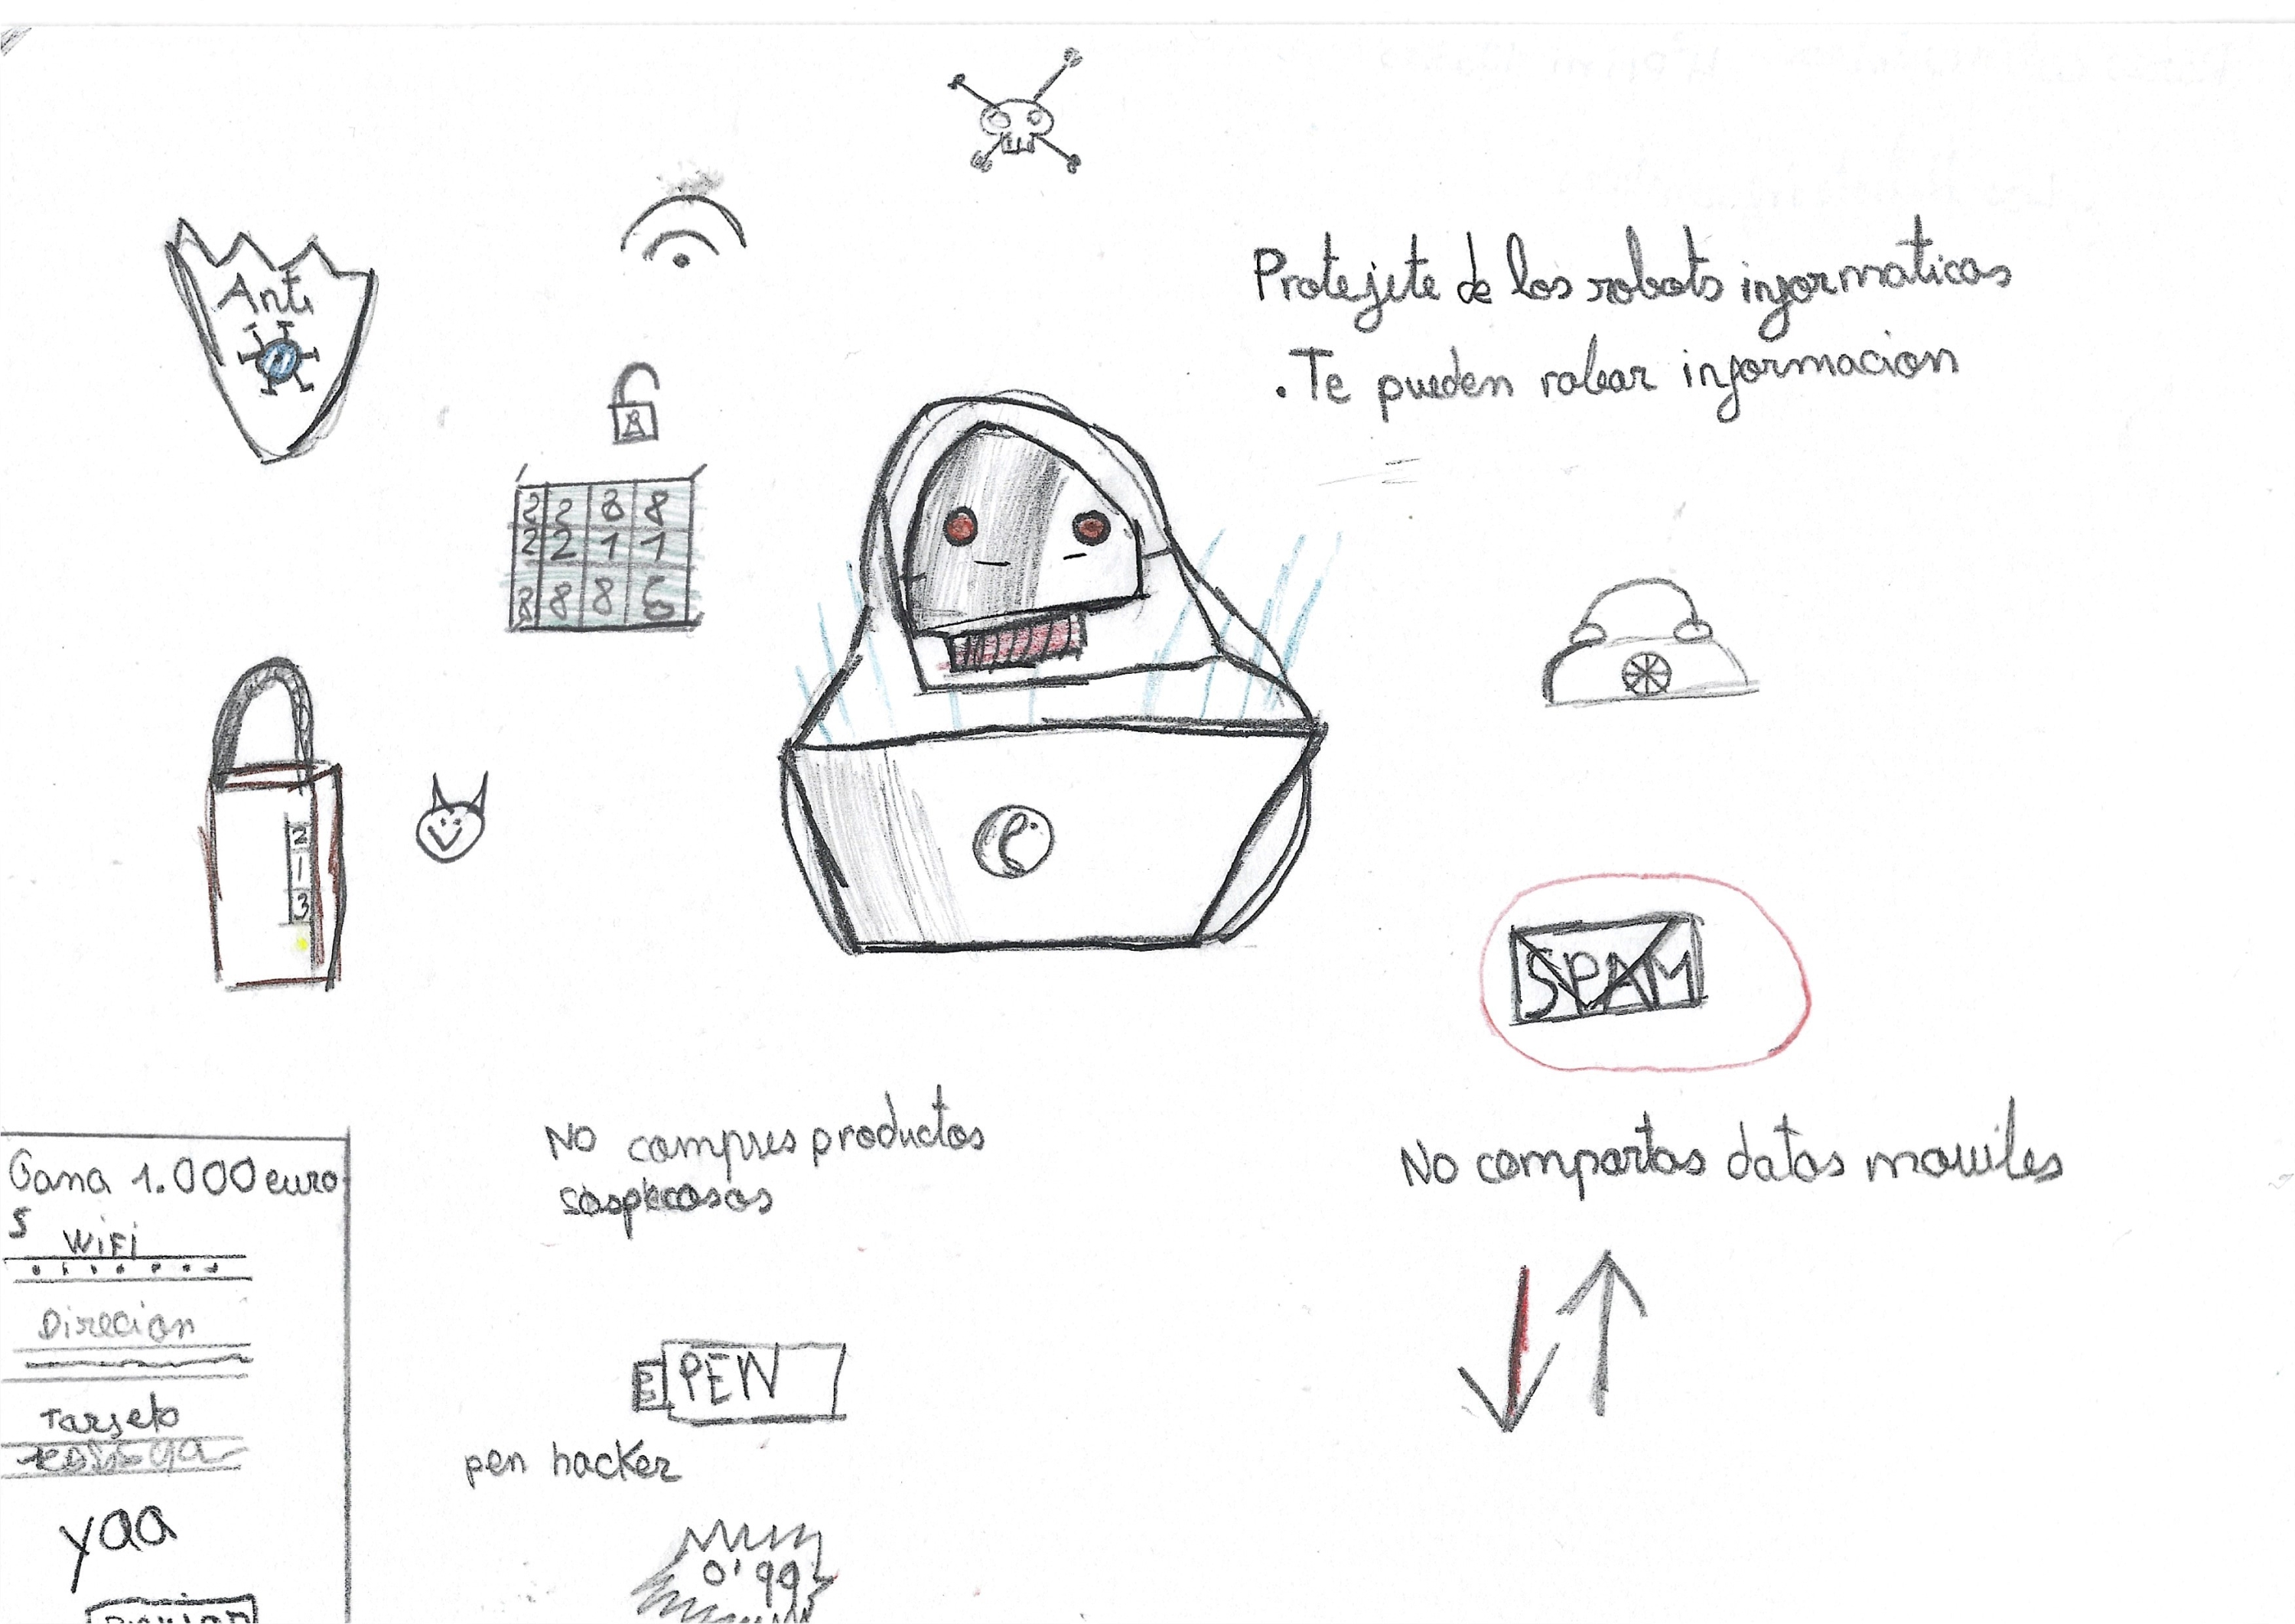 Protejete de los robots informaticos
. Te pueden robar informacion
Anti
2 2 8 8
2 2 1 1
8 8 8 6
2
1
3
SPAM
No compres productos
sospecosos
No compartas datos moviles
Gana 1.000 euro
s
WiFi
Direcion
Tarjeta
yaa
PEN
pen hacker
0'99